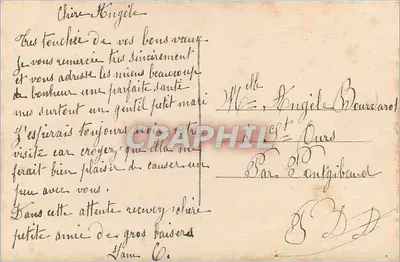 Chère Angèle
Tres touchée de vos bons vœux
je vous remercie très sincèrement
et vous adresse les miens beaucoup
de bonheur une parfaite santé
me surtout un gentil petit mari
J'espérais toujours votre
visite car croyez que cela m
ferait bien plaisir de causer un
peu avec vous.
Dans cette attente recevez chère
petite amie de gros baisers
C.
Mlle Angèle Bourdarot
St Ours
Par Pontgibaud
P. D D
CPAPHIL.COM